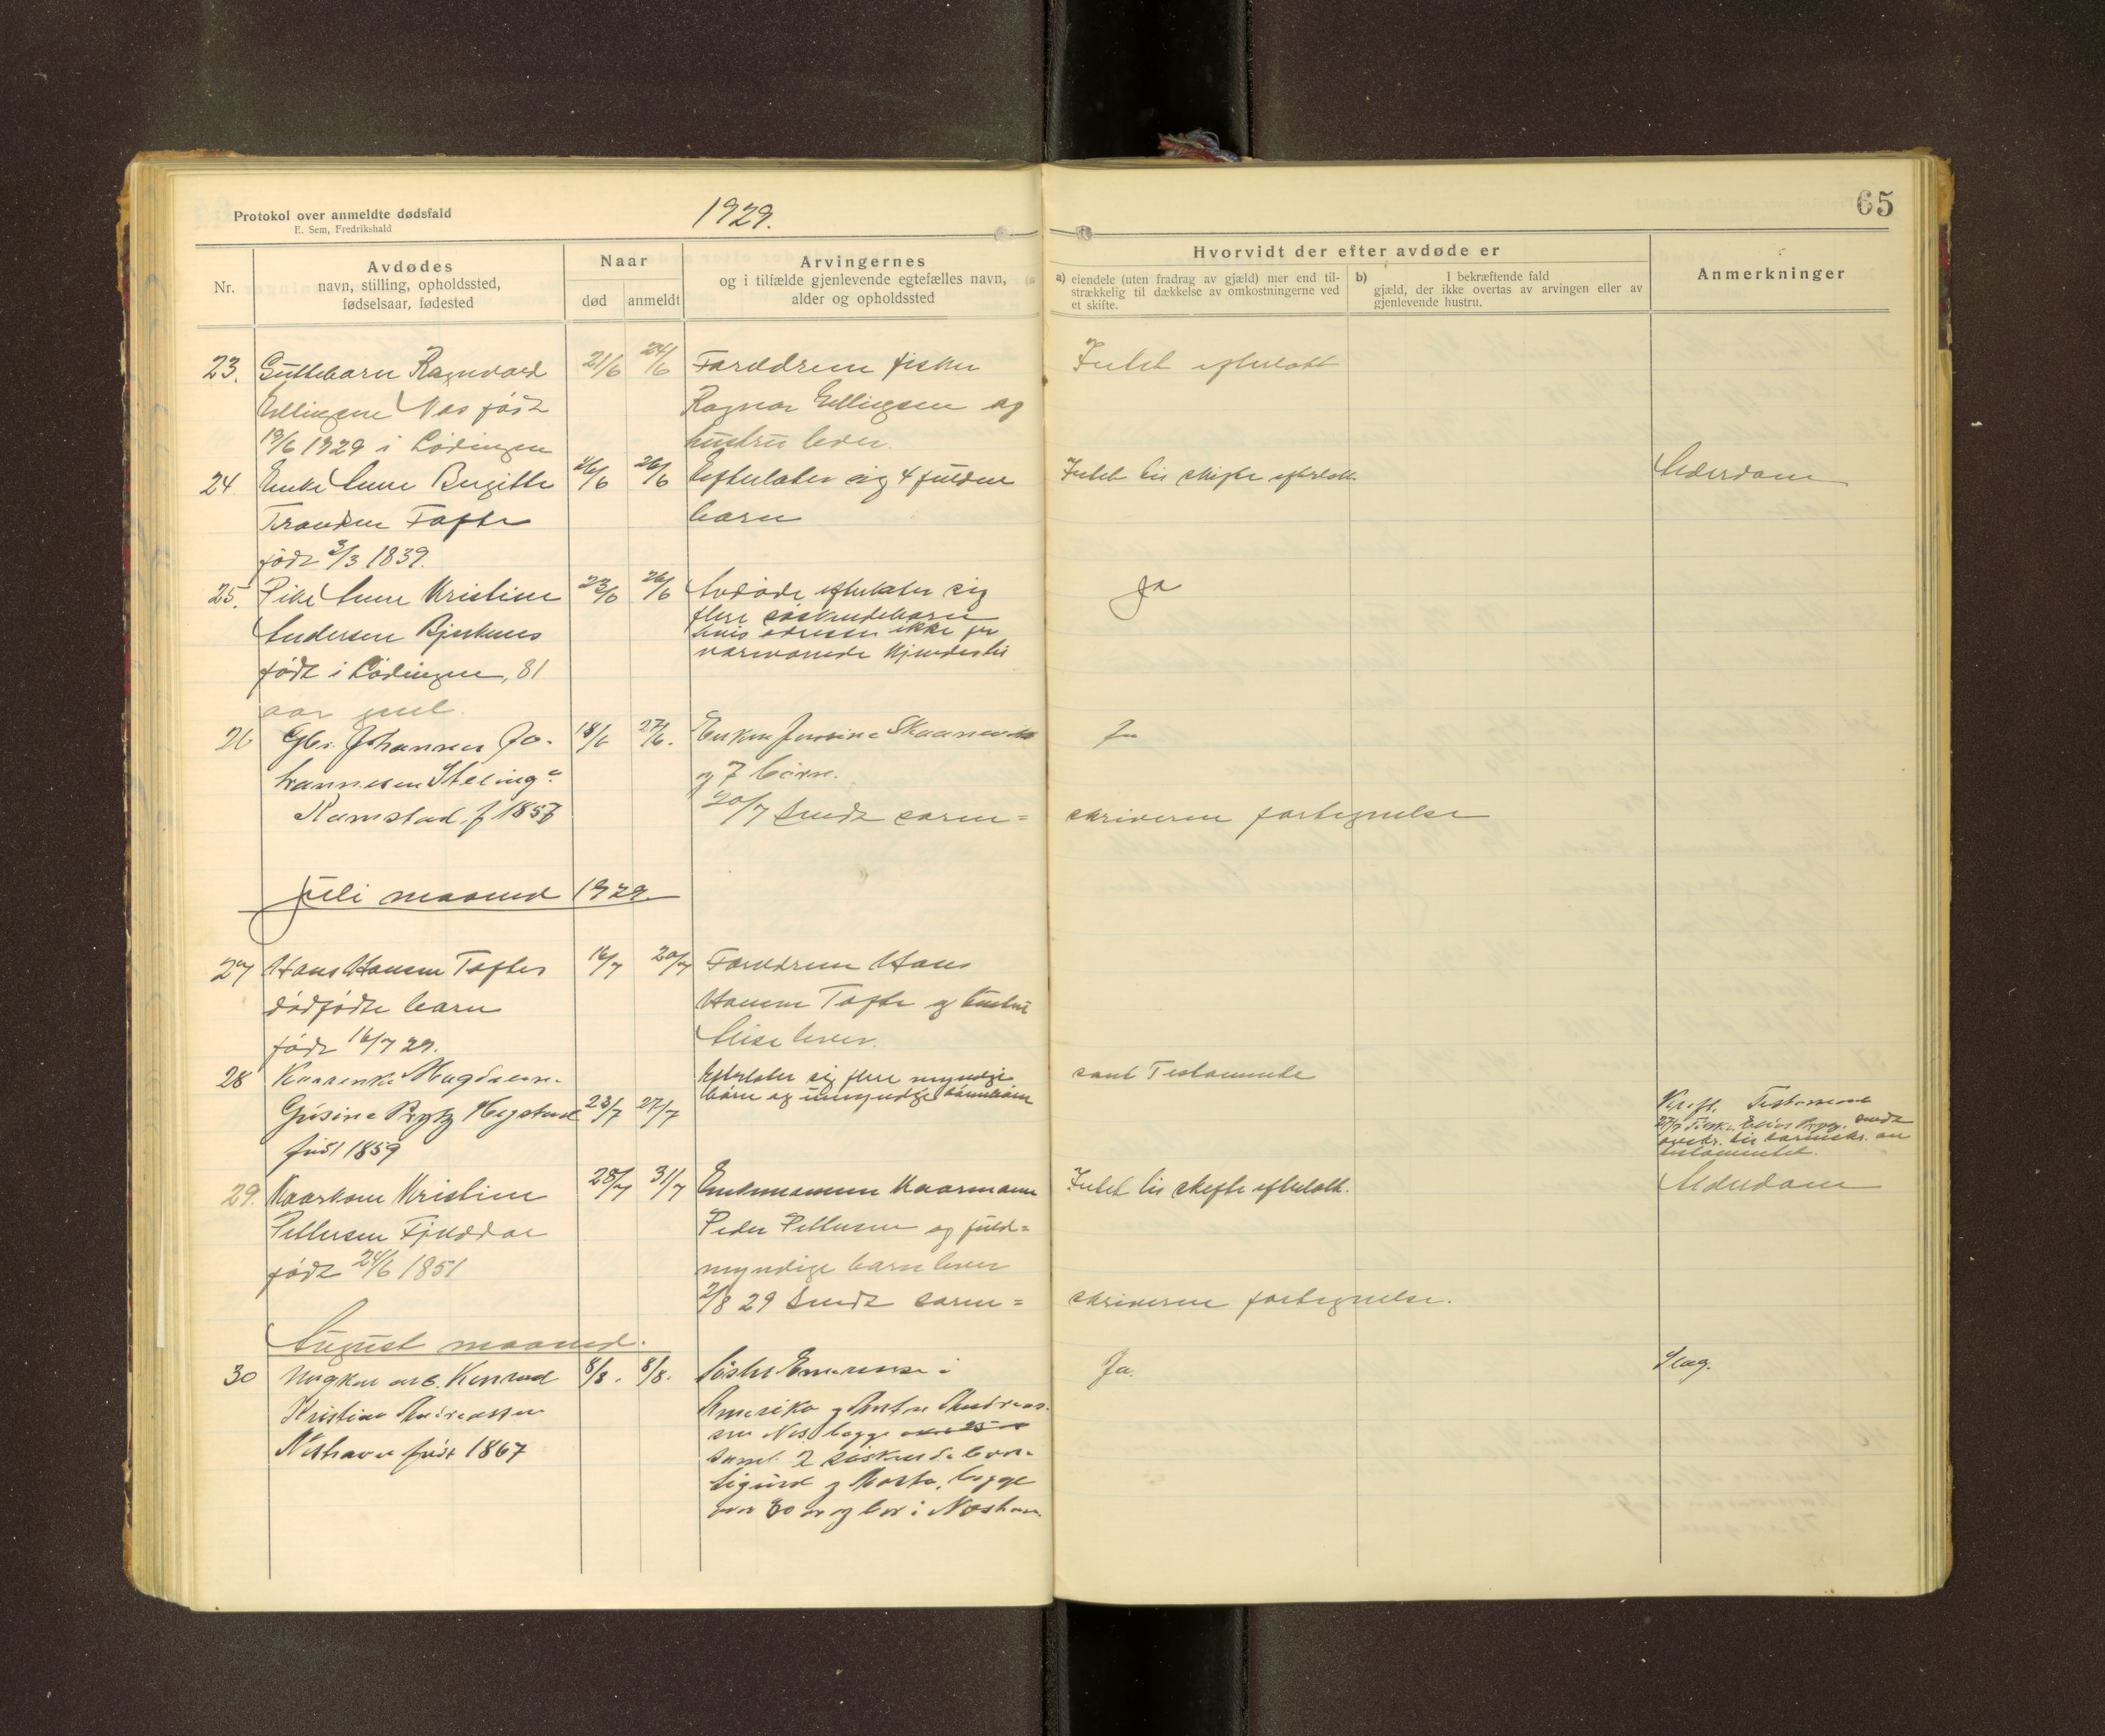 Protokol over anmeldte dødsfald
E. Sem, Fredrikshald
1929.
65
Nr.
Avdødes
navn, stilling, opholdssted,
fødselsaar, fødested
Naar
død
anmeldt
Arvingernes
og i tilfælde gjenlevende egtefælles navn,
alder og opholdssted
Hvorvidt der efter avdøde er
a) eiendele (uten fradrag av gjæld) mer end til-
strækkelig til dækkelse av omkostningerne ved
et skifte.
b) I bekræftende fald
gjæld, der ikke overtas av arvingen eller av
gjenlevende hustru.
Anmerkninger
23. Guttebarn Ragnvald 21/6 24/6 Forældrene fisker Intet efterlatt
Ellingsen Nes født Ragnar Ellingsen og
19/6 1929 i Lødingen hustru lever.
24 Enke Anne Birgitte 16/6 26/6 Efterlater sig 4 Intet til skifte efterlatt Alderdom
Tofte barn
født 3/3 1839.
25. Pike Anne Kristine 23/6 26/6 Avdøde efterlater sig Ja
Andersen flere søskendebarn
hvis adresser ikke for
nærværende kjendes til
født i Lødingen, 81
aar gml.
26 Gbr. Johannes Jo- 18/6 27/6. Enken Ja
hannesen og 7 børn.
Ramstad f 1857
20/7 Sendt soren= skriveren fortegnelse
Juli maaned 1929.
27 Hans Hansen Toftes 16/7 20/7 Forældrene Hans
dødfødte barn Hansen Tofte og hustru
født 16/7 29. Elise lever.
28 Efterlater sig flere myndige samt Testamente
23/7 27/7 børn og umyndige barnebarn
født 1859
Testament
27/7
testamentet.
29. Kaarkone Kristine 28/7 31/7 Enkemannen Kaarmann Intet til skifte efterlatt. Alderdom
Pettersen Fjelddal Peder Pettersen og fuld=
født 24/6 1851 myndige barn lever
2/8 29 Sendt soren= skriveren fortegnelse.
August maaned.
30 Ungkar arb. Konrad 8/8. 8/8. Søster i Ja. Slag.
Kristian Andreassen Amerika og Andreas-
Neshavn født 1867 sen Nes, begge
samt 2 søskendebarn
Sigurd og begge
over 20 år og bor i